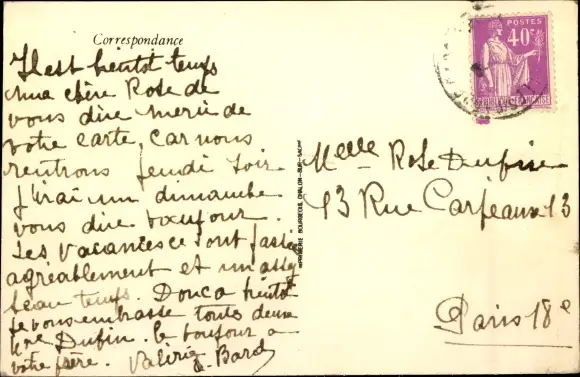 Correspondance
Il est bientôt temps
ma chère Rose de
vous dire merci de
votre carte, car nous
rentrons jeudi soir
j'irai un dimanche
vous dire bonjour.
Les vacances ce sont passé
agréablement et un assez
beau temps. Donc a bientôt
je vous embrasse toutes deux
Mme Dufin. le bonjour a
votre frère. Valérie Bard
IMPRIMERIE BOURGEOIS, CHALON-SUR-SAONE
POSTES
40c
REPUBLIQUE FRANÇAISE
Melle Rose Dufin
13 Rue Carpeaux 13
Paris 18e